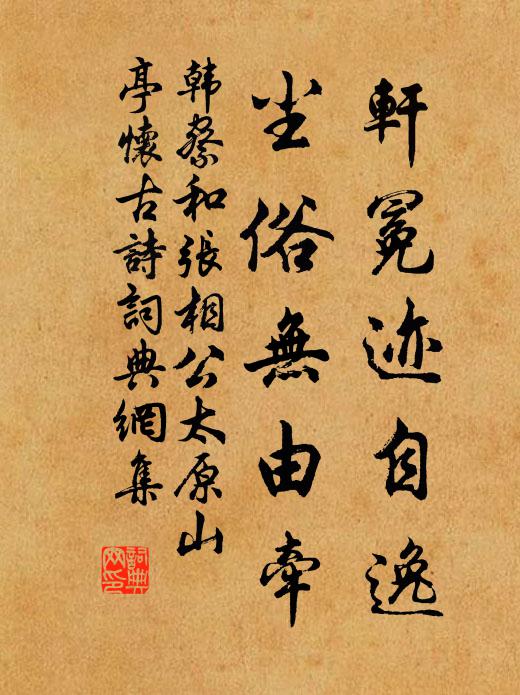 軒冕迹自逸
尘俗無由牽
韩察和張相公太原山
亭懷古詩詞典網集
詞典
网印